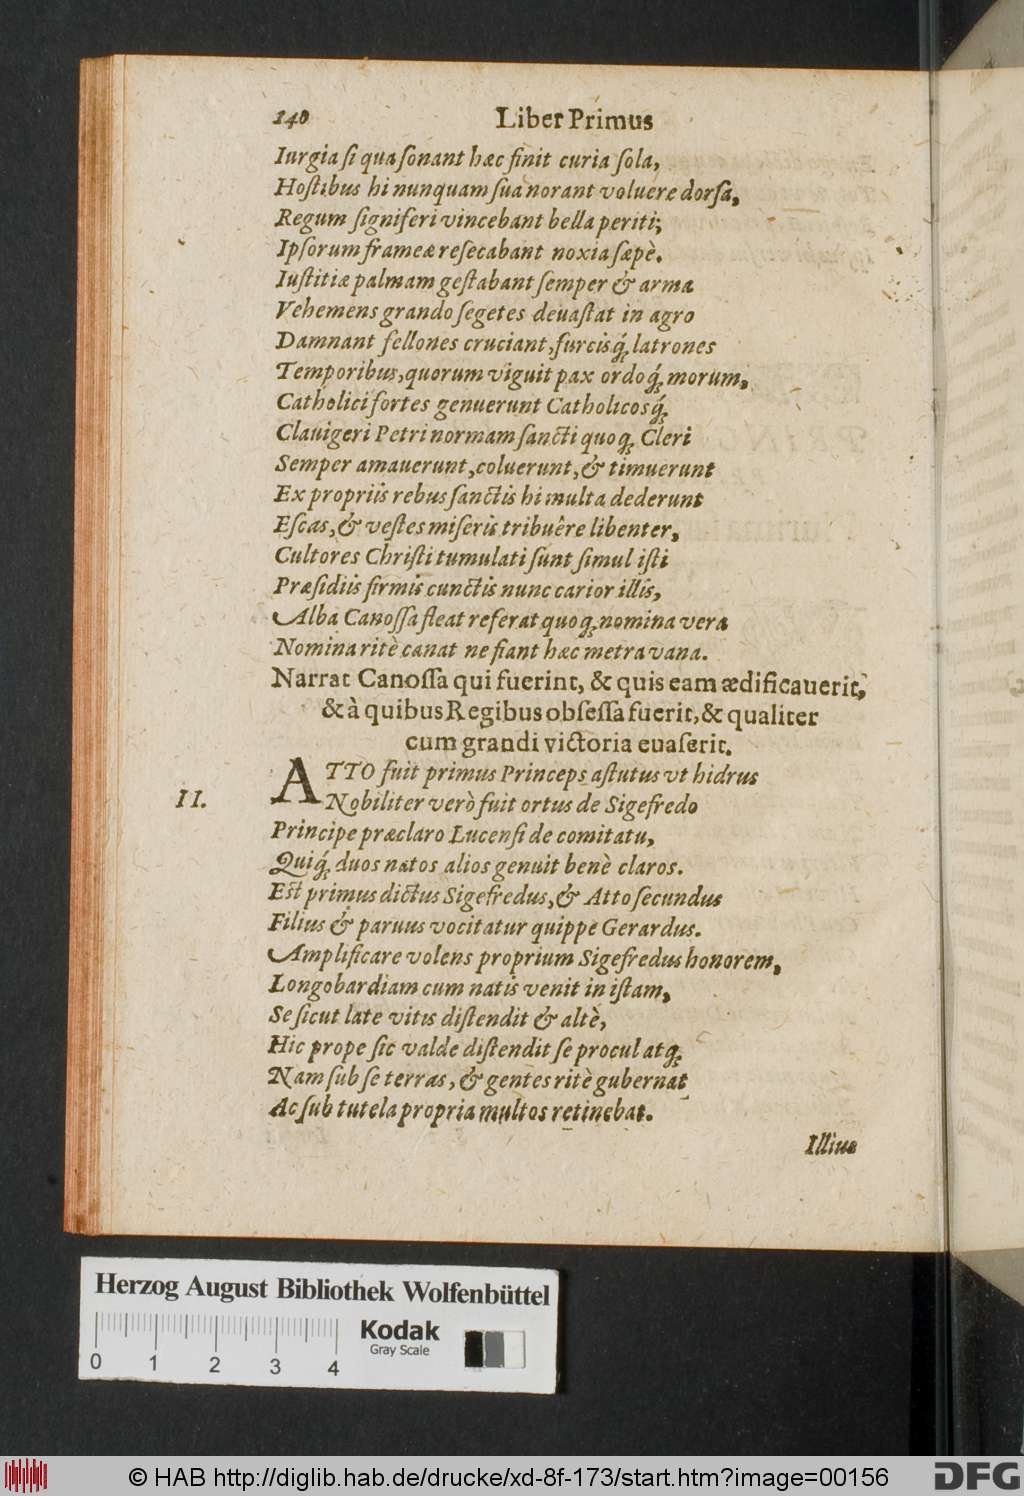 140 Liber Primus
Iurgia ſi qua ſonant hæc finit curia ſola,
Hoſtibus hi nunquam ſua norant voluere dorſa,
Regum ſigniferi vincebant bella periti;
Ipſorum frameæ reſecabant noxia ſæpè.
Iuſtitiæ palmam geſtabant ſemper & arma
Vehemens grando ſegetes deuaſtat in agro
Damnant fellones cruciant, furcisq́; latrones
Temporibus, quorum viguit pax ordoq́; morum,
Catholici fortes genuerunt Catholicosq́;
Clauigeri Petri normam ſancti quoq; Cleri
Semper amauerunt, coluerunt, & timuerunt
Ex propriis rebus ſanctis hi multa dederunt
Eſcas, & veſtes miſeris tribuêre libenter,
Cultores Chriſti tumulati ſunt ſimul iſti
Præſidiis firmis cunctis nunc carior illis,
Alba Canoſſa fleat referat quoq; nomina vera
Nomina ritè canat ne fiant hæc metra vana.
Narrat Canoſſa qui fuerint, & quis eam ædificauerit,
& à quibus Regibus obſeſſa fuerit, & qualiter
cum grandi victoria euaſerit.
ATTO fuit primus Princeps aſtutus vt hidrus
II. Nobiliter verò fuit ortus de Sigefredo
Principe præclaro Lucenſi de comitatu,
Quiq́; duos natos alios genuit benè claros.
Est primus dictus Sigefredus, & Atto ſecundus
Filius & paruus vocitatur quippe Gerardus.
Amplificare volens proprium Sigefredus honorem,
Longobardiam cum natis venit in iſtam,
Se ſicut late vitis diſtendit & altè,
Hic prope ſic valde diſtendit ſe procul atq;
Nam ſub ſe terras, & gentes ritè gubernat
Ac ſub tutela propria multos retinebat.
Illius
Herzog August Bibliothek Wolfenbüttel
0 1 2 3 4
Kodak
Gray Scale
© HAB http://diglib.hab.de/drucke/xd-8f-173/start.htm?image=00156
DFG